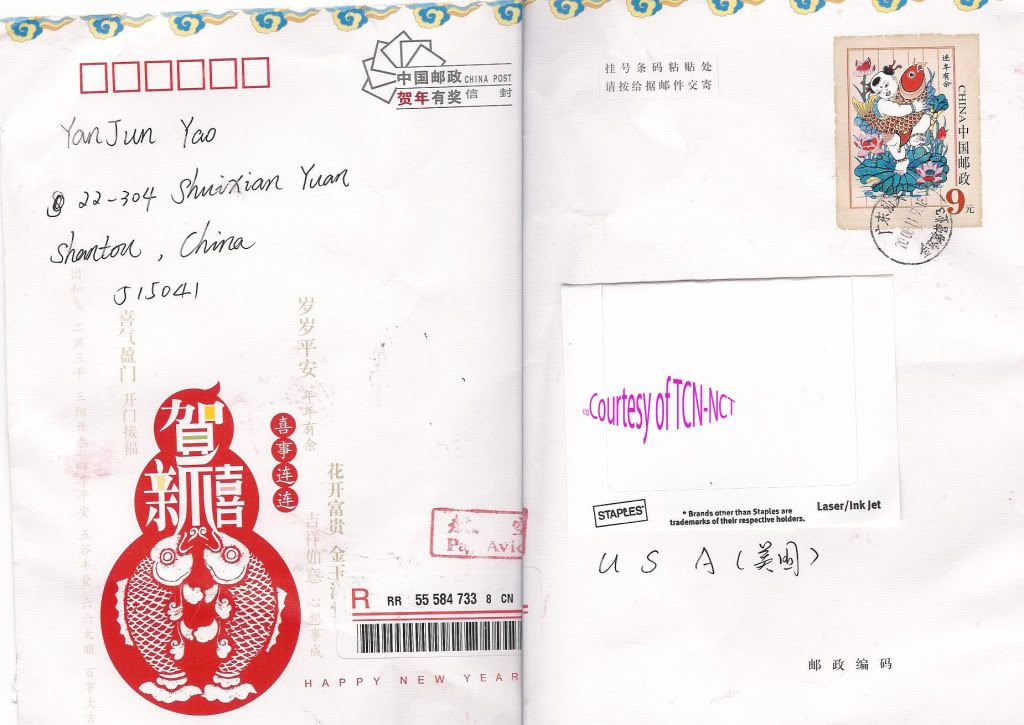 中国邮政 CHINA POST
贺年有奖 信 封
YanJun Yao
22-304 Shuixian Yuan
Shantou, China
515041
喜气盈门 开门接福
岁岁平安 年年有余
花开富贵 金玉满
吉祥如意 心想事成
贺
新禧
喜事连连
航 空
Par Avio
R RR 55 584 733 8 CN
HAPPY NEW YEAR
挂号条码粘贴处
请按给据邮件交寄
连年有余
CHINA 中国邮政
9元
广东
Courtesy of TCN-NCT
STAPLES
* Brands other than Staples are
trademarks of their respective holders.
Laser/Ink Jet
U S A (美国)
邮政编码